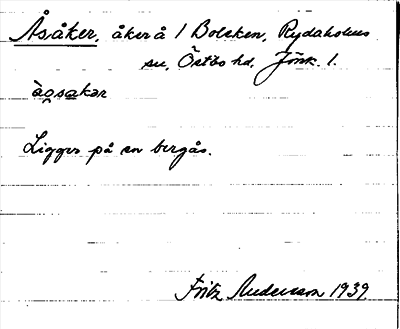 Åsåker, åker å 1 Bolsken, Rydaholms
sn, Östbo hd, Jönk. l.
àgsakər
Ligger på en bergås.
Fritz Andersson 1939